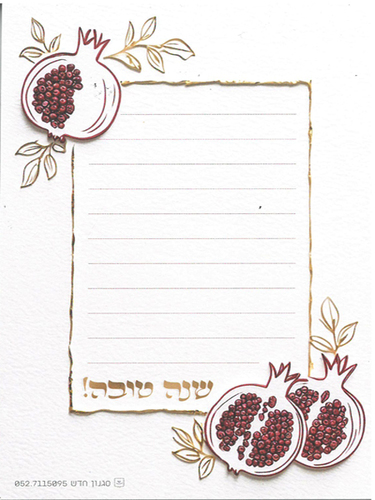 שנה טובה!
סגנון חדש 052.7115095